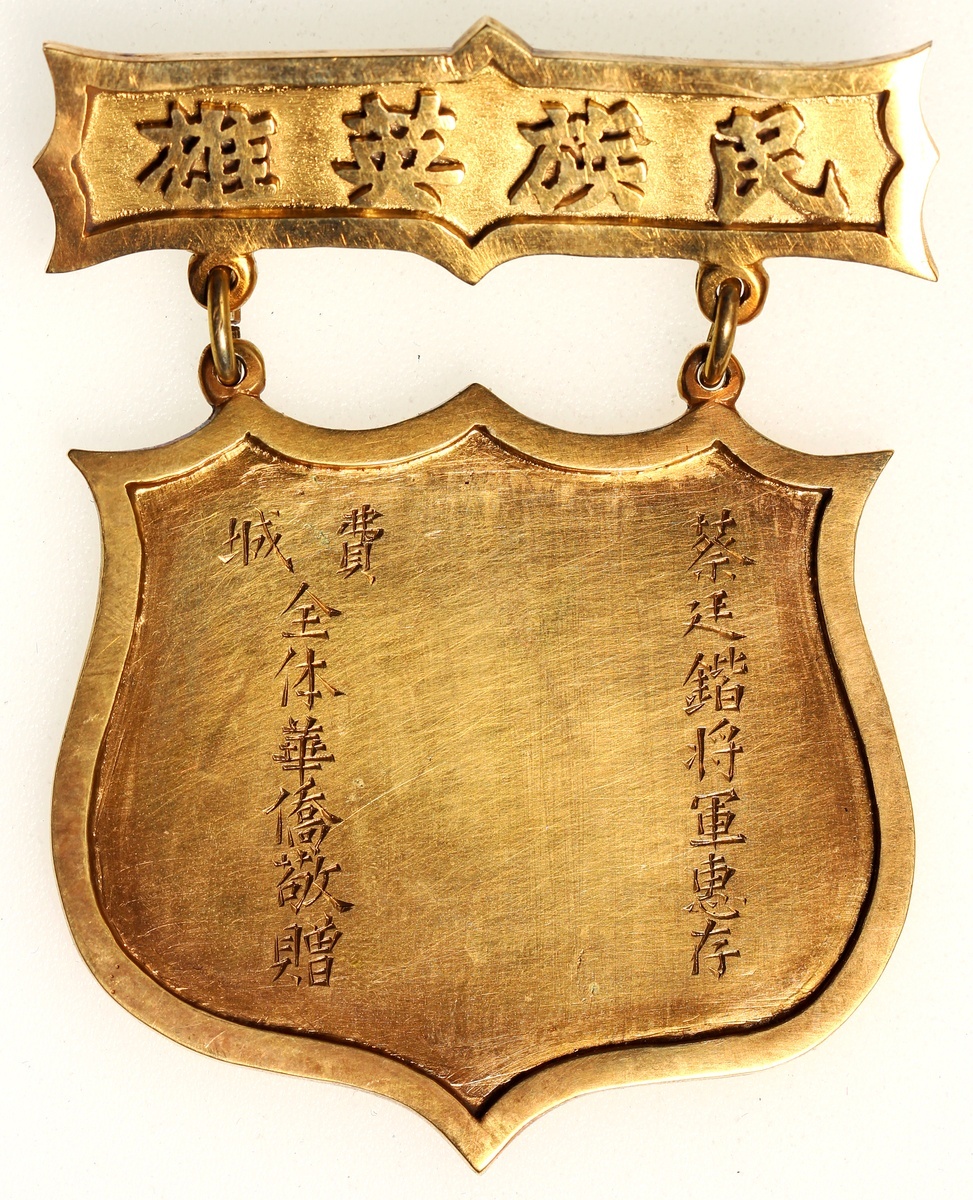 民族英雄
蔡廷鍇将軍惠存
費城
全体華僑敬贈